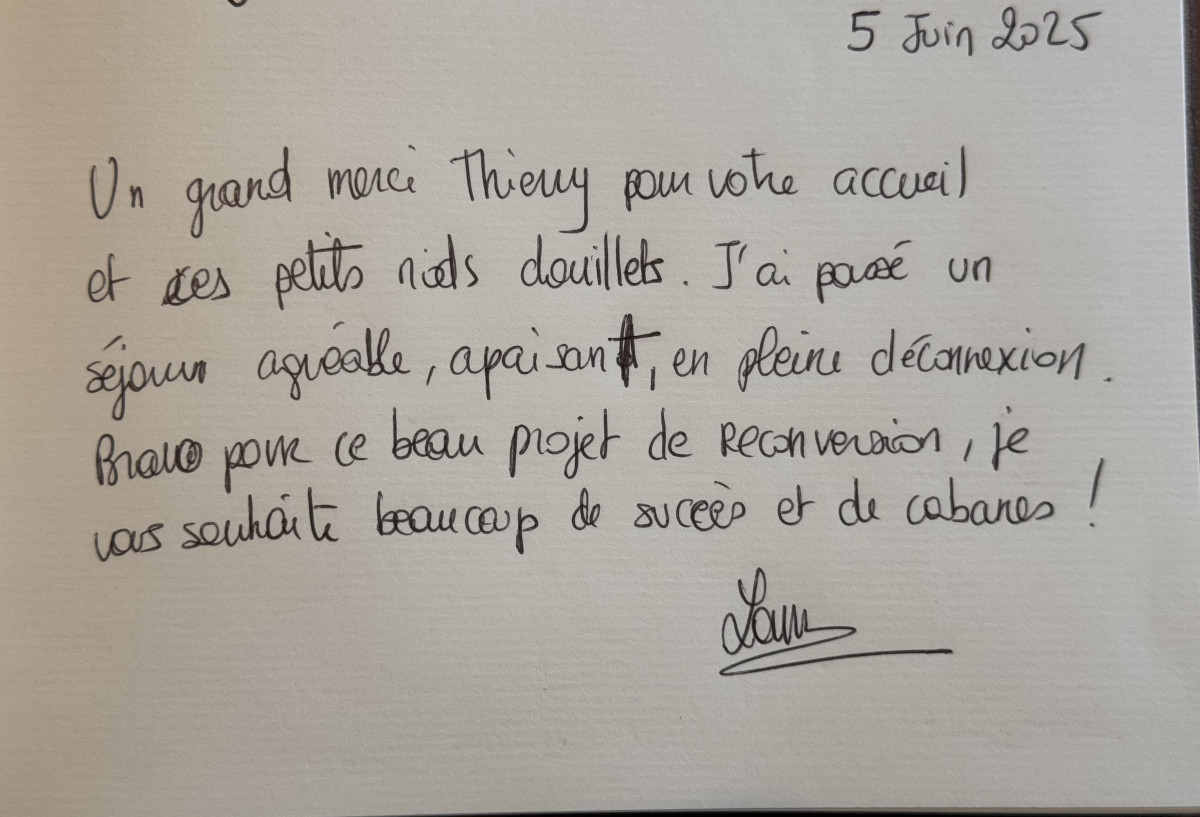 5 Juin 2025
Un grand merci Thierry pour votre accueil
et ces petits nids douillets. J'ai passé un
séjour agréable, apaisant, en pleine déconnexion.
Bravo pour ce beau projet de reconversion, je
vous souhaite beaucoup de succès et de cabanes !